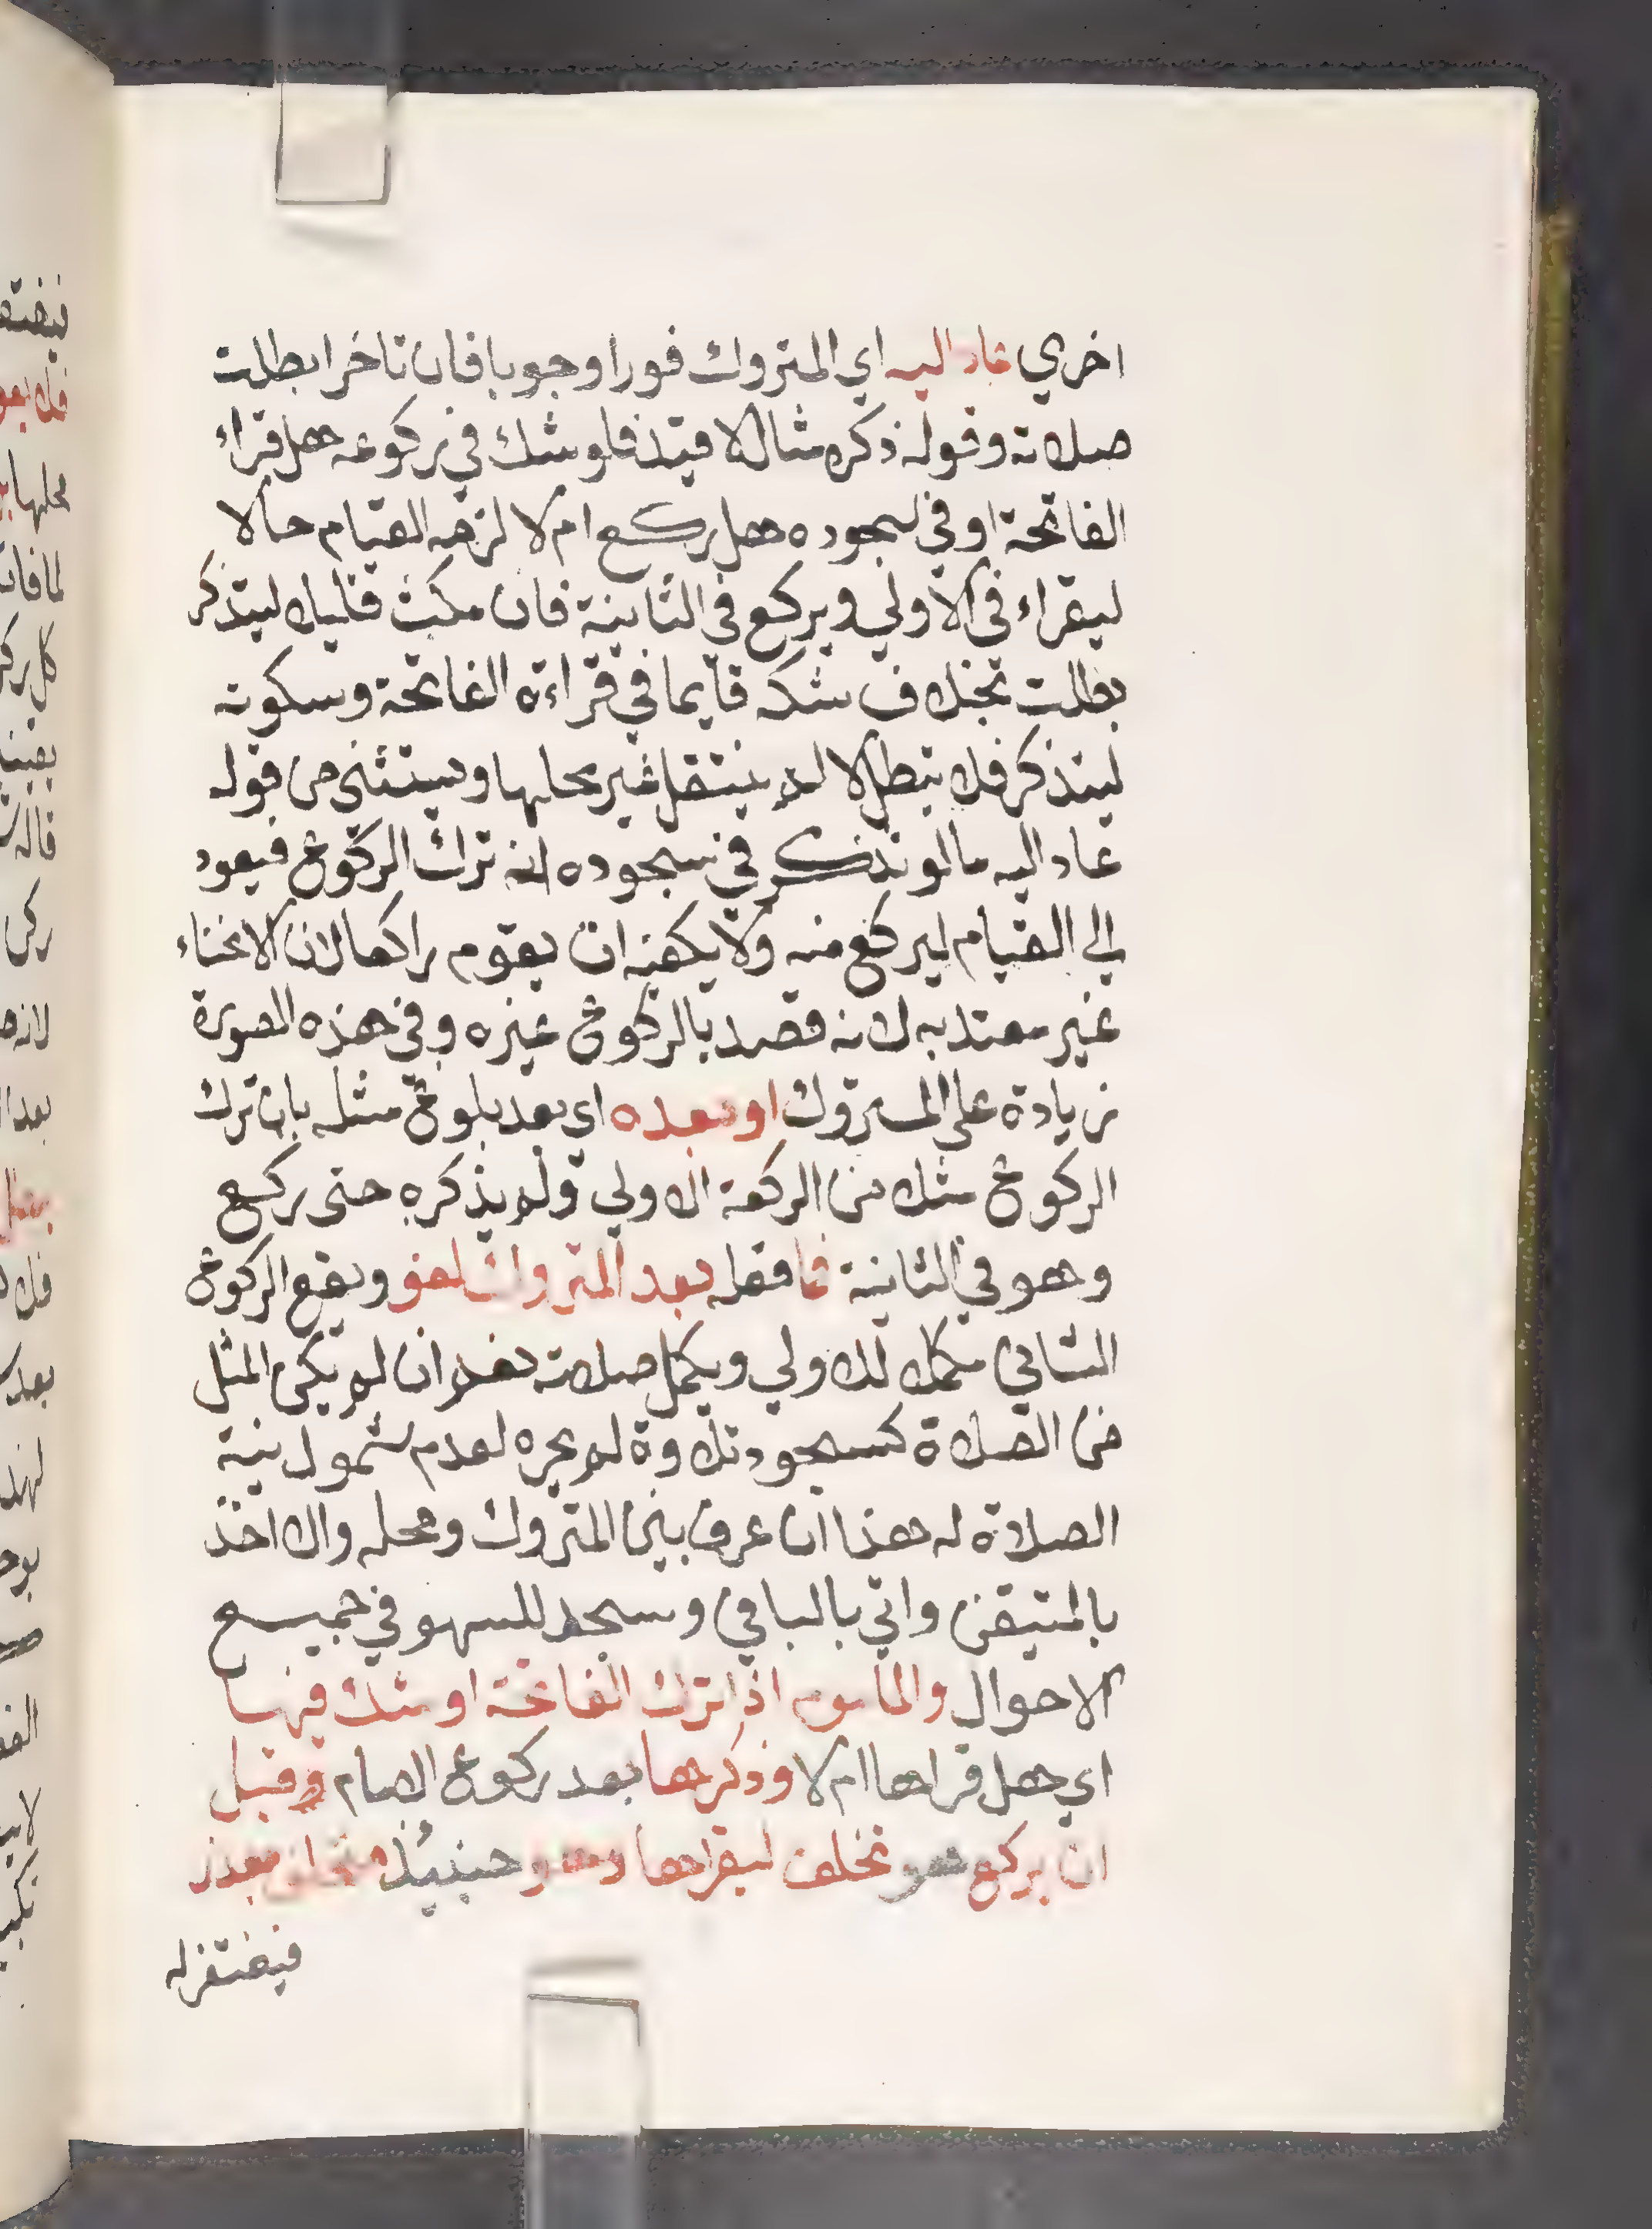 اخري عاد اليه اي المتروك فورا وجوبا فان تاخر ابطلت
صلاته وقوله ذكره مثال لا قيد فلو شك في ركوعه هل قراء
الفاتحة او في سجوده هل ركع ام لا لزمه القيام حالا
ليقراء في الاولي ويركع في الثانية فان مكث قليلا ليتذكر
بطلت بخلاف شكه قايما في قراءة الفاتحة وسكوته
ليتذكر فلا تبطل لا لم ينتقل غير محلها ويستثنى من قوله
عاد اليه ما لو تذكر في سجوده انه ترك الركوع فيعود
الي القيام ليركع منه ولا يكفيه ان يقوم راكعا لان الانحناء
غير معتد به لانه قصد بالركوع غيره وفي هذه الصورة
زيادة علي المتروك او بعده اي بعد بلوغ مثله بان ترك
الركوع مثلا من الركعة الاولي ولم يذكره حتى ركع
وهو في الثانية فما فعله بعد المتروك لغو ويقع الركوع
الثاني مكملا للاولي ويكمل صلاته نعم ان لم يكن المثل
من الصلاة كسجود تلاوة لم يجزه لعدم شمول نية
الصلاة له هذا ان عرف بين المتروك ومحله والا اخذ
بالمتيقن واتي بالباقي وسجد للسهو في جميع
الاحوال والماموم اذا ترك الفاتحة او شك فيها
اي هل قراها ام لا وذكرها بعد ركوع امام وقبل
ان يركع هو تخلف ليقراها وهو حينيُذ متخلف بعذر
فيغتفر له